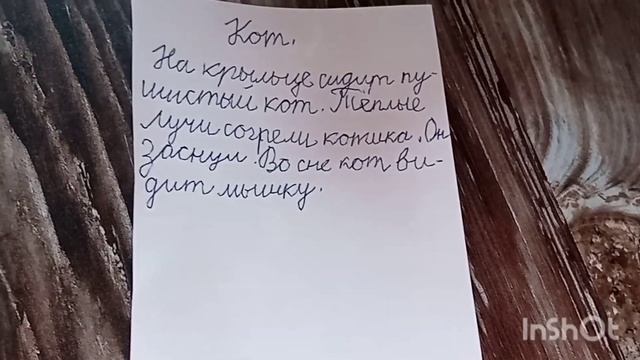 Кот.
На крыльце сидит пу-
шистый кот. Тёплые
лучи согрели котика. Он
заснул. Во сне кот ви-
дит мышку.
InShOt